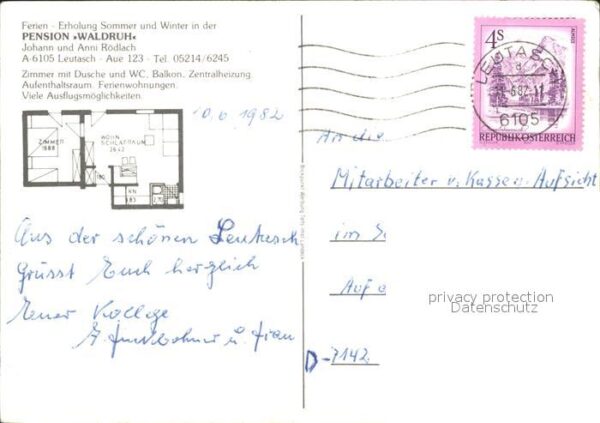 Ferien - Erholung Sommer und Winter in der
PENSION »WALDRUH«
Johann und Anni Rödlach
A-6105 Leutasch - Aue 123 - Tel. 05214/6245
Zimmer mit Dusche und WC, Balkon, Zentralheizung
Aufenthaltsraum. Ferienwohnungen.
Viele Ausflugsmöglichkeiten.
10.6.1982
ZIMMER
WOHN
SCHLAFRAUM
Aus der schönen Leutasch
Grüsst Euch herzlich
Euer Kollege
u. Frau
4 S
LEUTASCH
6105
REPUBLIK ÖSTERREICH
An die
Mitarbeiter v. Kassen-Aufsicht
im S
Auf
D-7142
privacy protection
Datenschutz